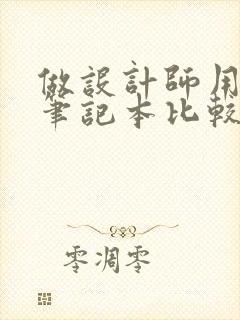 做設計師用
筆記本比較
零凋零